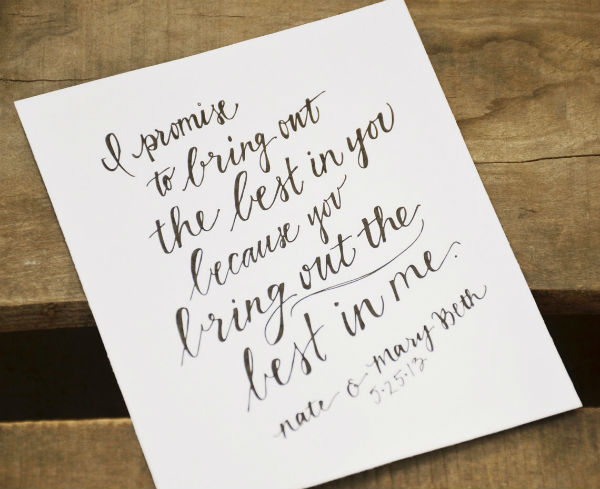 I promise
to bring out
the best in you
because you
bring out the
best in me.
nate & Mary Beth
5.25.13